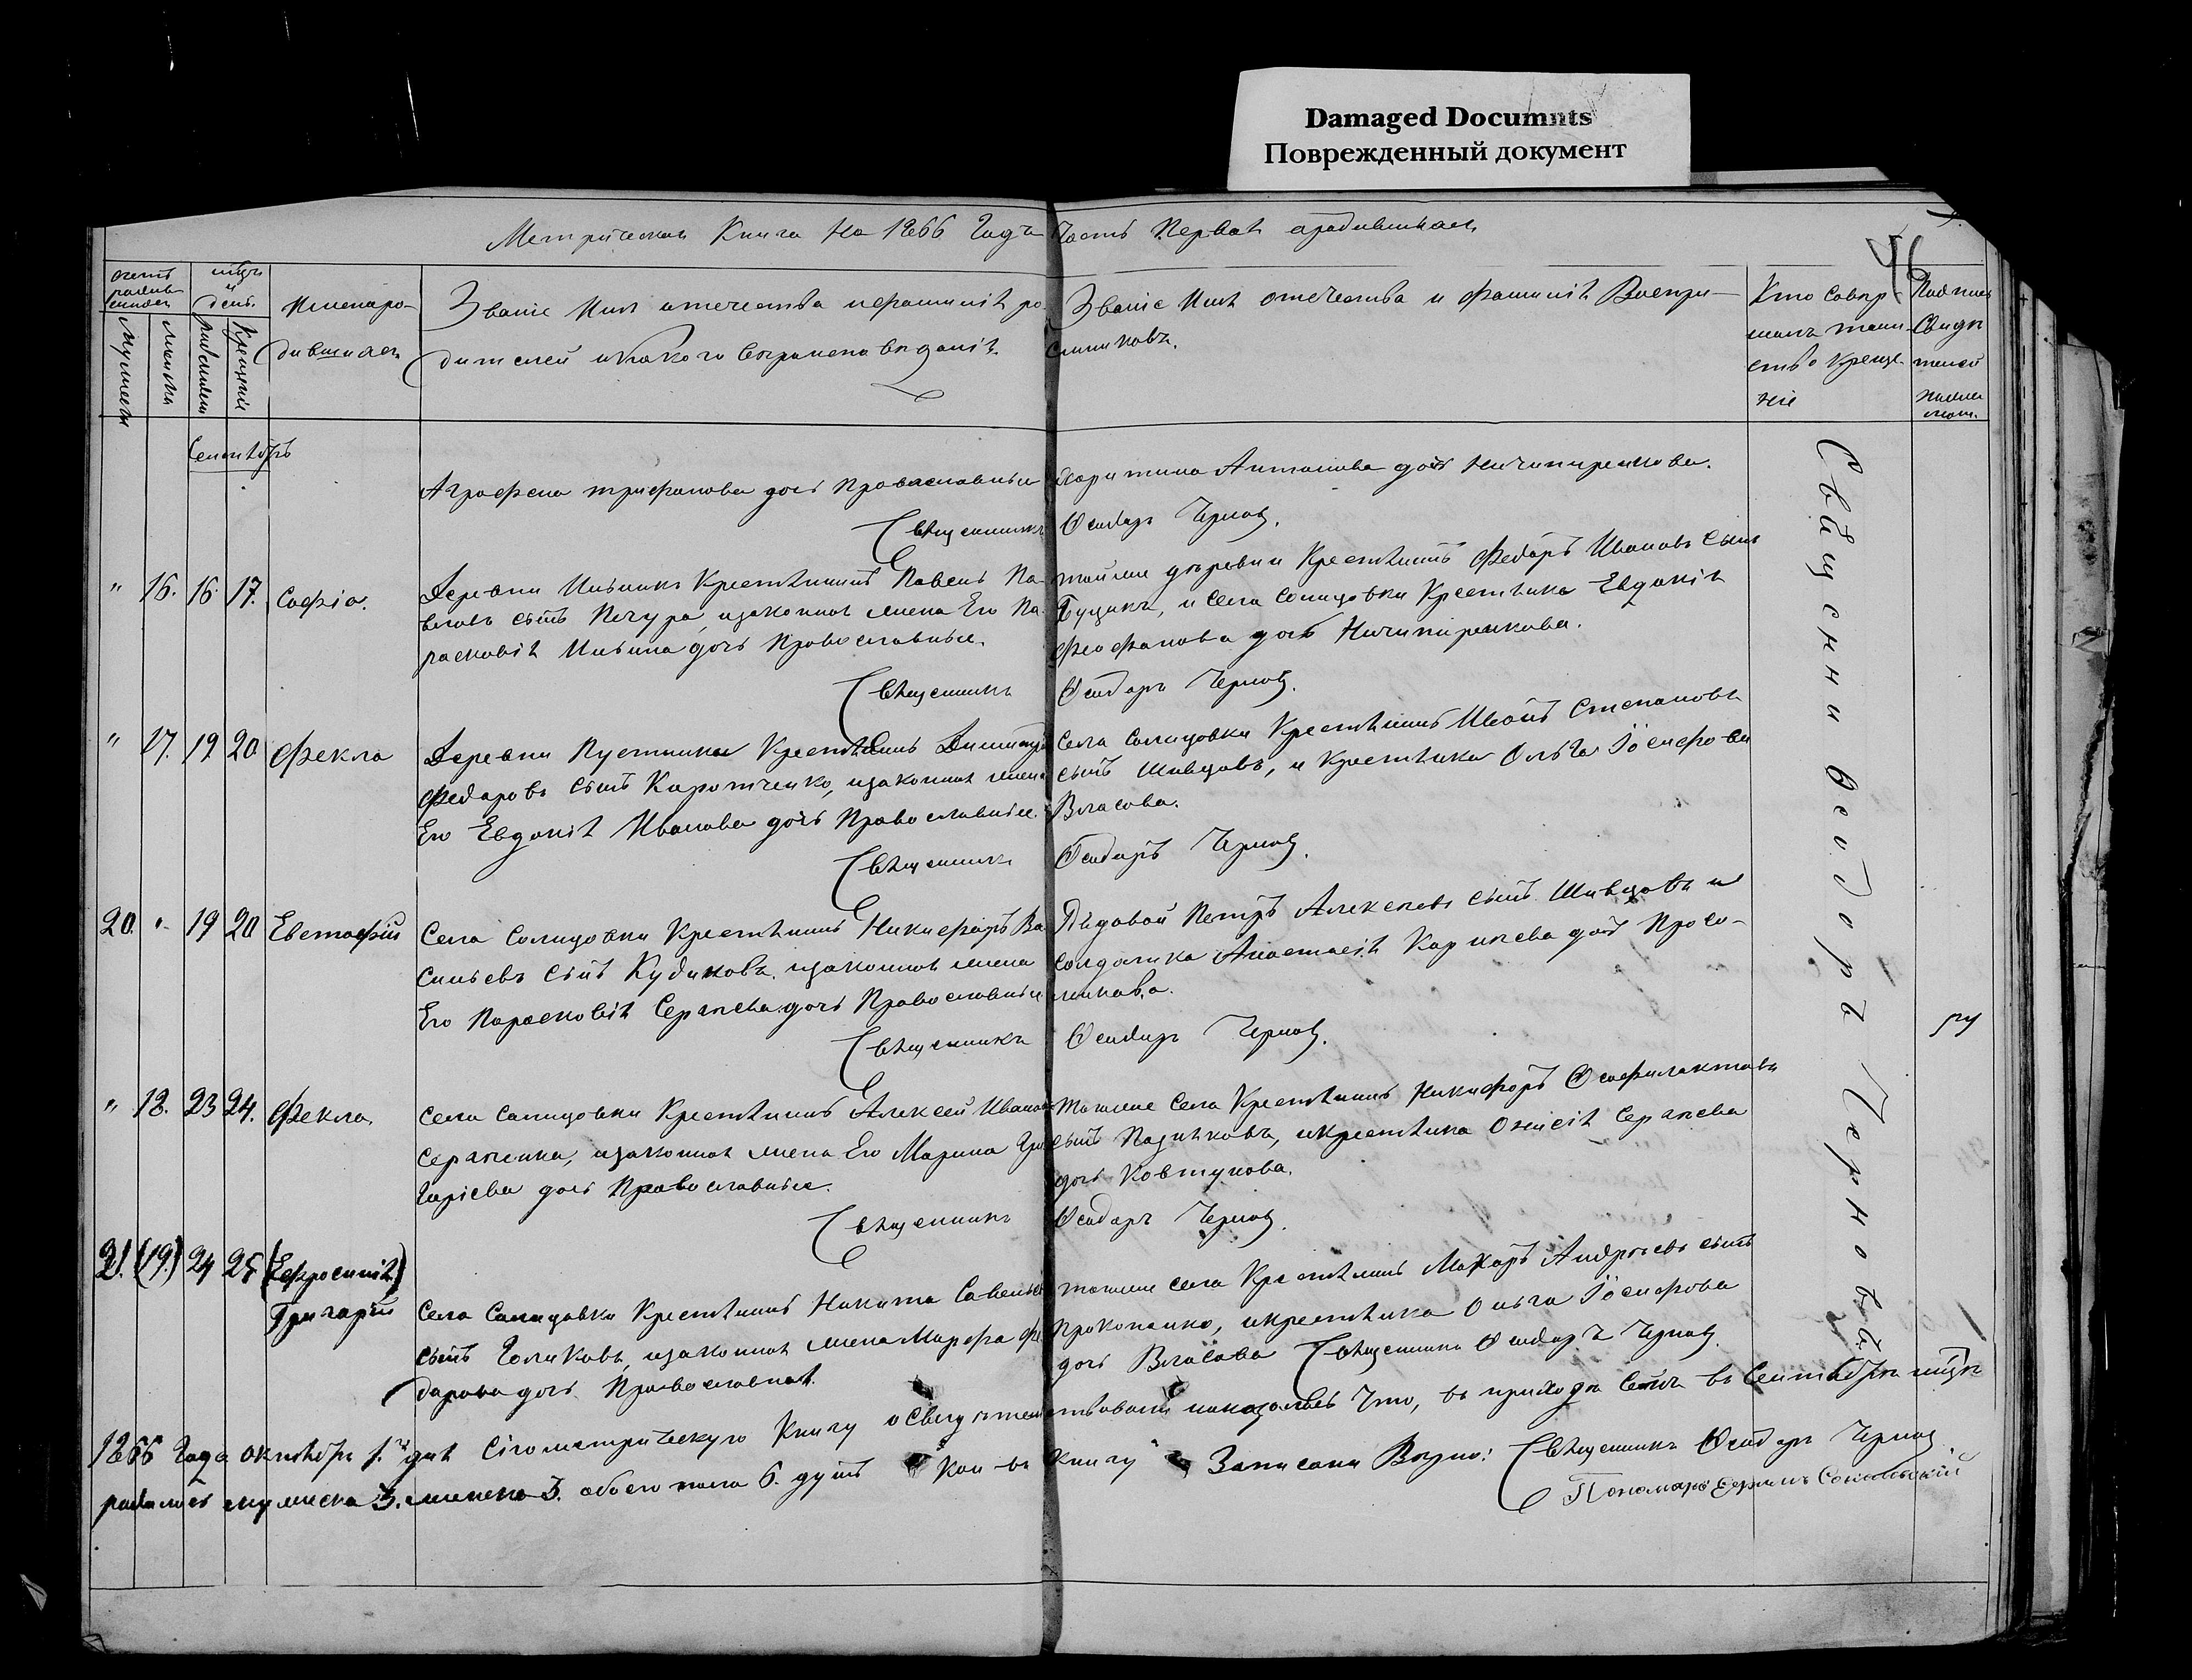 Damaged Documnts
Поврежденный документ
Метрическая Книга на 1866 Годъ Часть Первая ородившихся
46
Счетъ родив-шихся
мужеска
женска
мѣцъ и день
рожденія
крещенія
Имена ро-
дившихся
Званіе Имя отечество и фамилія ро-
дителей и какого вероисповеданія
Званіе Имя отечество и фамилія Воспри-
емниковъ.
Кто совер-
шалъ таин-
ство креще-
нія
Подпись
Свидѣ
телей
Сентябрь
Аграфена Трифанова дочь Православные
Харитина Антонова дочь Ничипиренкова.
Священникъ Ѳеодоръ Чернов
" 16. 16. 17. Софіа.
Деревни Ивинки Крестьянинъ Павелъ Па-
вловъ сынъ Печура, изаконная жена Его Па-
расковія Ильина дочь Православные.
тойже деревни Крестьянинъ Федоръ Ивановъ сынъ
Буцикъ, и села Солидовки Крестьянка Евдокія
Феофанова дочь Ничипиренкова.
Священникъ Ѳеодоръ Чернов
" 17. 19 20 Фекла
Деревни Пустынки Крестьянинъ Димитрій
Федоровъ сынъ Коротченко, изаконная жена
Его Евдокія Иванова дочь Православные.
Села Солидовки Крестьянинъ Иванъ Степановъ
сынъ Шивцовъ, и Крестьянка Ольга Іосифова
Власова.
Священникъ Ѳеодоръ Чернов.
20. " 19 20 Евстафій
Села Солидовки Крестьянинъ Никифоръ Ва-
сильевъ сынъ Кубиковъ, изаконная жена
Его Парасковія Сергеева дочь Православные
Рядовой Петръ Алексеевъ сынъ Шивцовъ и
солдатка Анастасія Кариеева дочь Просо-
линова.
Священникъ Ѳеодоръ Чернов.
" 18. 23 24. Фекла.
Села Солидовки Крестьянинъ Алексей Иванов
Сергиенка, изаконная жена Его Марина Гри
горіева дочь Православные.
тогоже села Крестьянинъ Никифоръ Ѳеофилактовъ
сынъ Подиковъ, икрестьянка Онисія Сергеева
дочь Ковтунова.
Священникъ Ѳеодоръ Чернов
21. (19.) 24 25 (Ефросинія)
Григорій
Села Солидовки Крестьянинъ Никита Савельев
сынъ Голиковъ, изаконная жена Марфа Фе-
дорова дочь Православная.
тогоже села Крестьянинъ Макаръ Андреевъ сынъ
Прокопенко, икрестьянка Ольга Іосифова
дочь Власова Священникъ Ѳеодоръ Чернов
Священникъ Ѳеодоръ Черновъ
1866 Года октября 1.го дня Сію метрическую Книгу освидетельствовали и оказалось Что, въ приходѣ Семъ въ Сентябрѣ мѣцѣ
родилось мужеска 3. женска 3. обоего пола 6. душъ Кои въ книгу Записаны Верно: Священникъ Ѳеодоръ Чернов
Пономарь Ефимъ Сокольскій